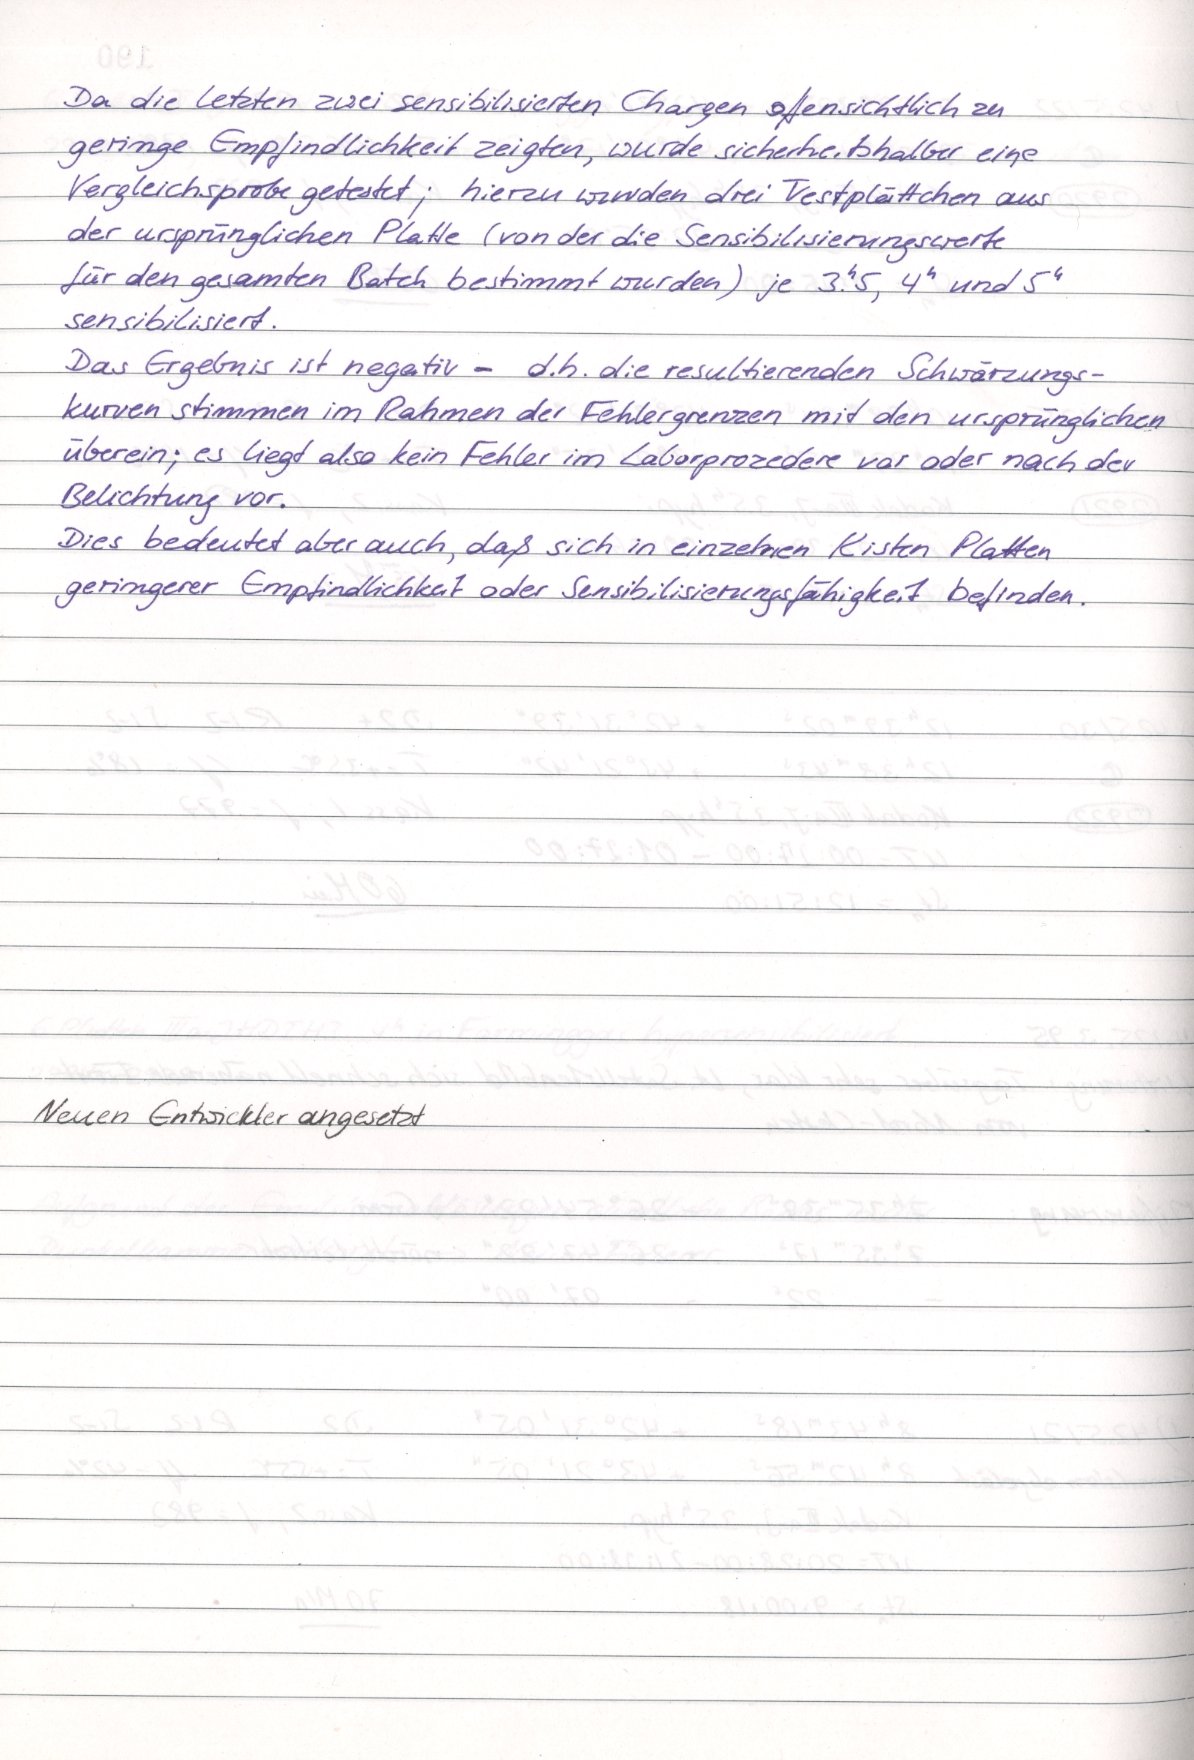 Da die letzten zwei sensibilisierten Chargen offensichtlich zu
geringe Empfindlichkeit zeigten, wurde sicherheitshalber eine
Vergleichsprobe getestet; hierzu wurden drei Testplättchen aus
der ursprünglichen Platte (von der die Sensibilisierungswerte
für den gesamten Batch bestimmt wurden) je 3.ʰ5, 4ʰ und 5ʰ
sensibilisiert.
Das Ergebnis ist negativ – d.h. die resultierenden Schwärzungs-
kurven stimmen im Rahmen der Fehlergrenzen mit den ursprünglichen
überein; es liegt also kein Fehler im Laborprozedere vor oder nach der
Belichtung vor.
Dies bedeutet aber auch, daß sich in einzelnen Kisten Platten
geringerer Empfindlichkeit oder Sensibilisierungsfähigkeit befinden.
Neuen Entwickler angesetzt